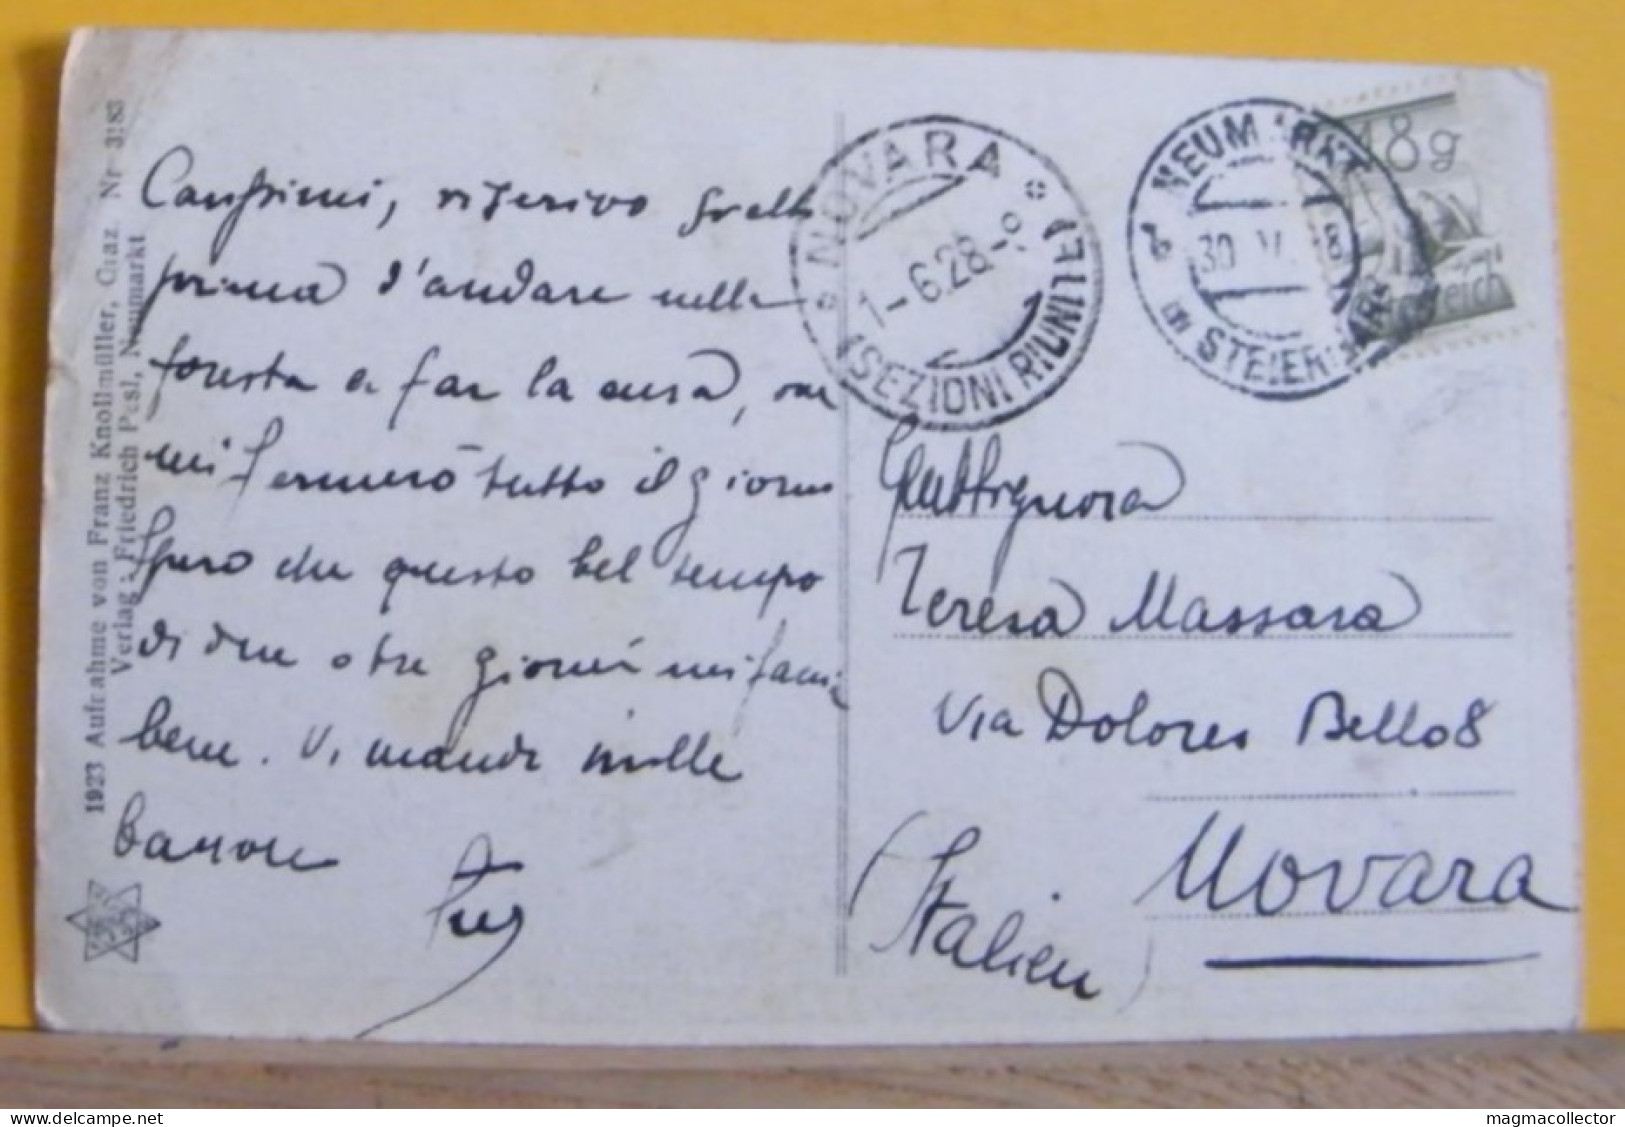 Carissimi, vi scrivo
prima d'andare nelle
foresta a far la cura,
mi fermerò tutto il giorno
Spero che questo bel tempo
di due o tre giorni mi faccia
bene. Vi mando mille
1923 Aufnahme von Franz Knollmüller, Graz. Nr 3183
Verlag: Friedrich Pesl, Neumarkt
NOVARA
1-6.28-9
(SEZIONI RIUNITE)
NEUMARKT
30 V
in STEIERMARK
18g
Österreich
Gent Signora
Teresa Massara
Via Dolores Bello 8
Novara
(Italien)
delcampe.net
magmacollector